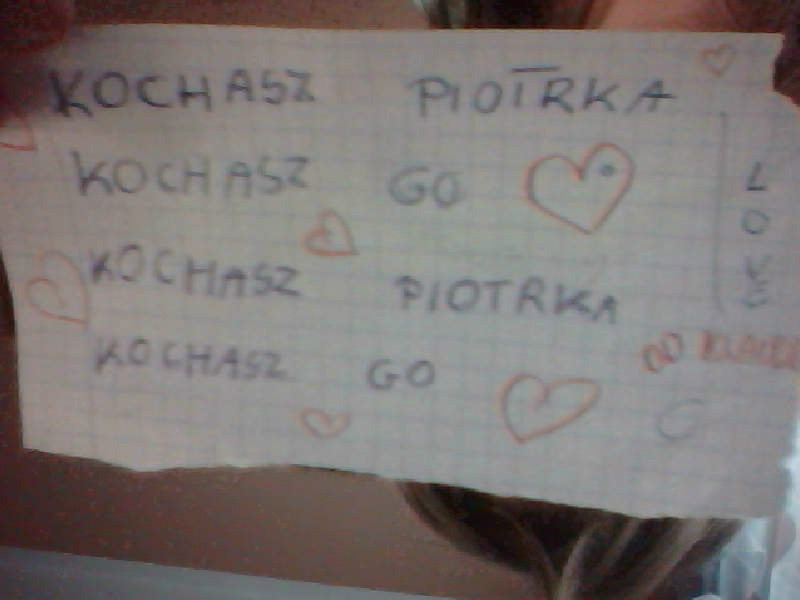 KOCHASZ PIOTRKA
KOCHASZ GO
KOCHASZ PIOTRKA
KOCHASZ GO
LOVE